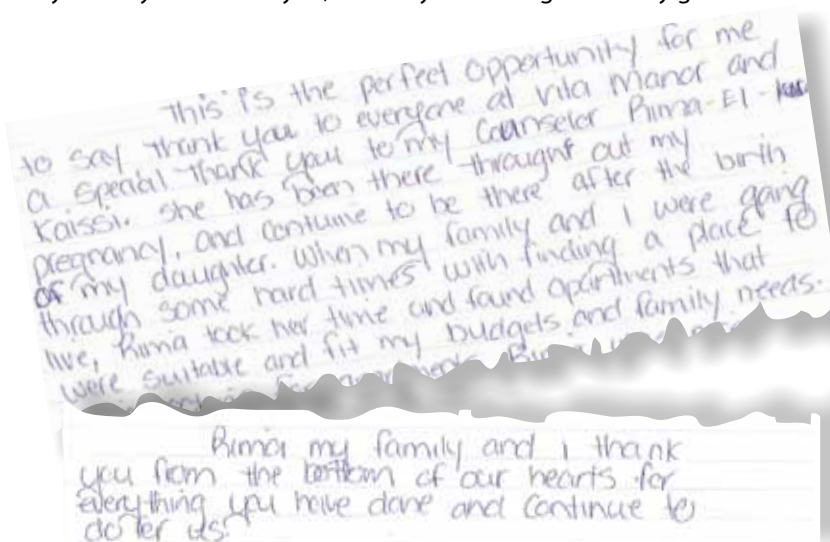 This is the perfect opportunity for me
to say thank you to everyone at Vita Manor and
a special thank you to my Counselor Rima-El-
Kaissi. She has been there throught out my
pregnancy, and contuine to be there after the birth
of my daughter. When my family and I were going
through some hard times with finding a place to
live, Rima took her time and found apartments that
were suitable and fit my budgets and family needs.
Rima my family and I thank
you from the bottom of our hearts for
everything you have done and continue to
do for us.